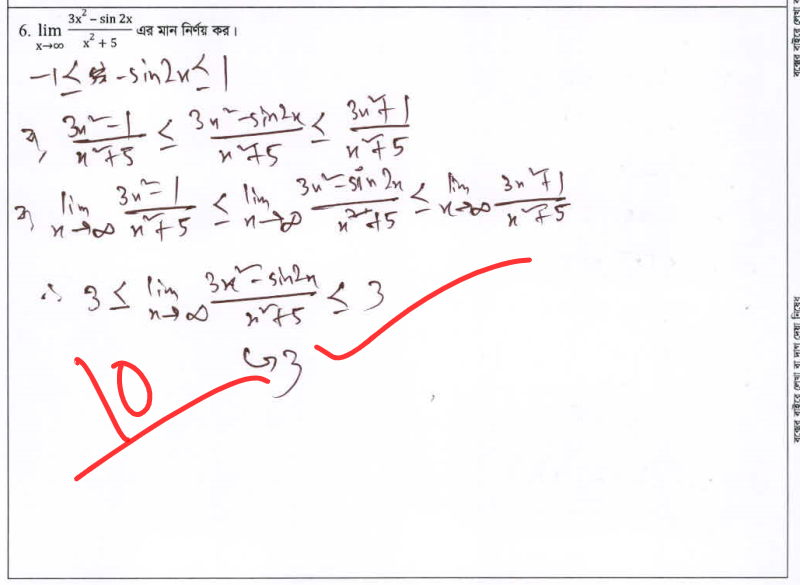 6. lim x→∞ (3x² – sin 2x)/(x² + 5) এর মান নির্ণয় কর।
-1 ≤ -sin2x ≤ 1
বা, (3x²-1)/(x²+5) ≤ (3x²-sin2x)/(x²+5) ≤ (3x²+1)/(x²+5)
বা, lim x→∞ (3x²-1)/(x²+5) ≤ lim x→∞ (3x²-sin2x)/(x²+5) ≤ lim x→∞ (3x²+1)/(x²+5)
∴ 3 ≤ lim x→∞ (3x²-sin2x)/(x²+5) ≤ 3
↪3
10